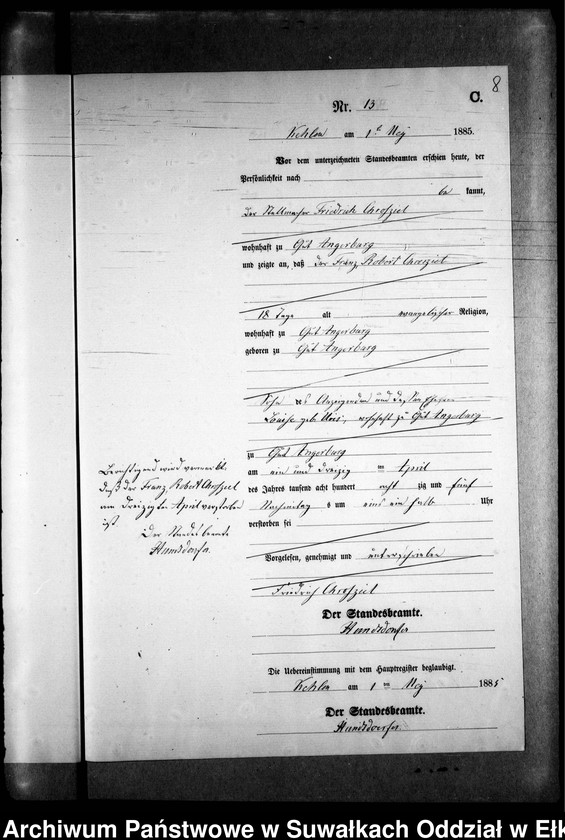 8
C.
Nr. 13
Kehlen am 1ten Mai 1885.
Vor dem unterzeichneten Standesbeamten erschien heute, der
Persönlichkeit nach
be kannt,
der Friedrich
wohnhaft zu Gut Angerburg
und zeigte an, daß der Franz Robert
18 Tage alt evangelischer Religion,
wohnhaft zu Gut Angerburg
geboren zu Gut Angerburg
Sohn des Anzeigenden und dessen Ehefrau
Louise geb. wohnhaft zu Gut Angerburg
zu Gut Angerburg
am ein und dreißig ten April
des Jahres tausend acht hundert acht zig und fünf
Nachmittag s um ein halb Uhr
verstorben sei
Vorgelesen, genehmigt und unterschrieben
Friedrich
Der Standesbeamte.
Hundsdorfer
Berichtigend wird vermerkt,
daß der Franz Robert
am dreizigten April verstorben
ist
Der Standesbeamte
Hundsdorfer
Die Uebereinstimmung mit dem Hauptregister beglaubigt.
Kehlen am 1 ten Mai 1885
Der Standesbeamte.
Hundsdorfer
Archiwum Państwowe w Suwałkach Oddział w Ełk